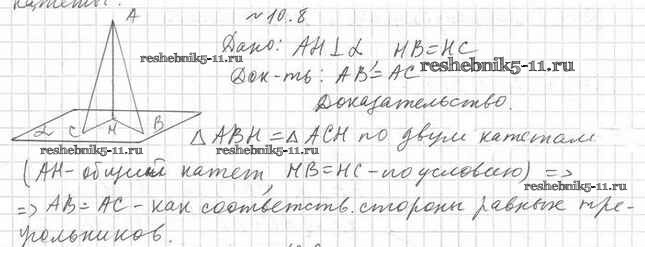 катеты.
A
№10.8
Дано: AH⊥α HB=HC
reshebnik5-11.ru
reshebnik5-11.ru
Док-ть: AB=AC
Доказательство.
α C H B
△ABH=△ACH по двум катетам
reshebnik5-11.ru
reshebnik5-11.ru
(AH-общий катет, HB=HC-по условию) =>
reshebnik5-11.ru
=> AB=AC-как соответств. стороны равных тре-
угольников.